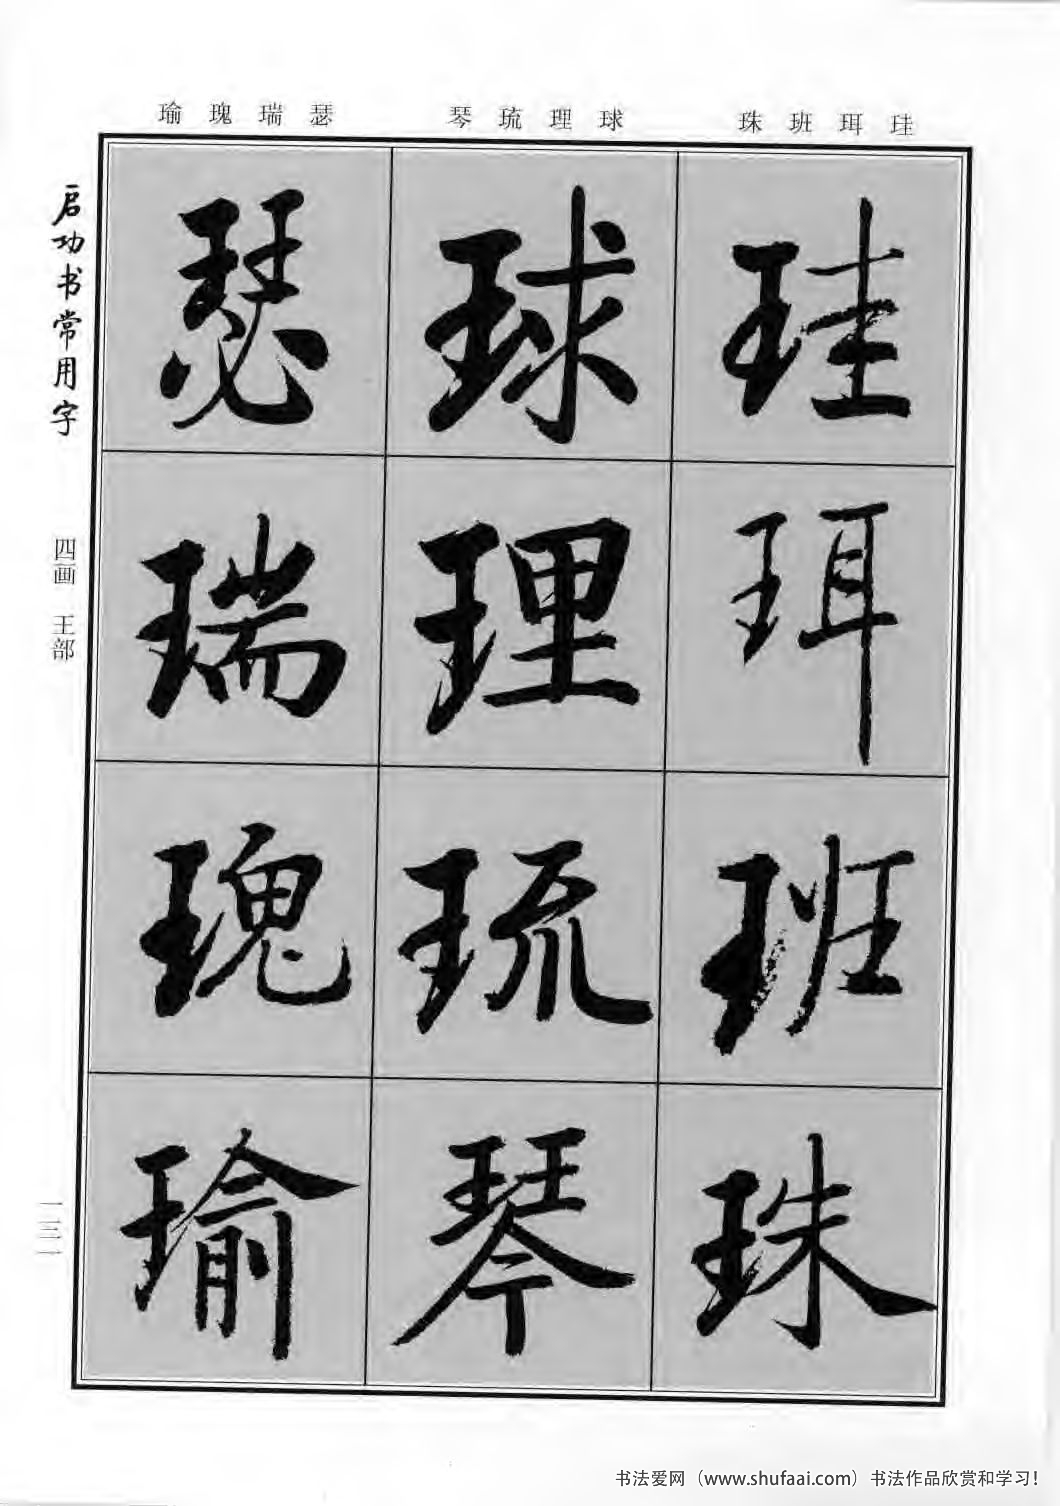 珠 班 珥 珪
琴 琉 理 球
瑜 瑰 瑞 瑟
珪
珥
班
珠
球
理
琉
琴
瑟
瑞
瑰
瑜
启功书常用字
四画 王部
一三一
书法爱网（www.shufaai.com）书法作品欣赏和学习！